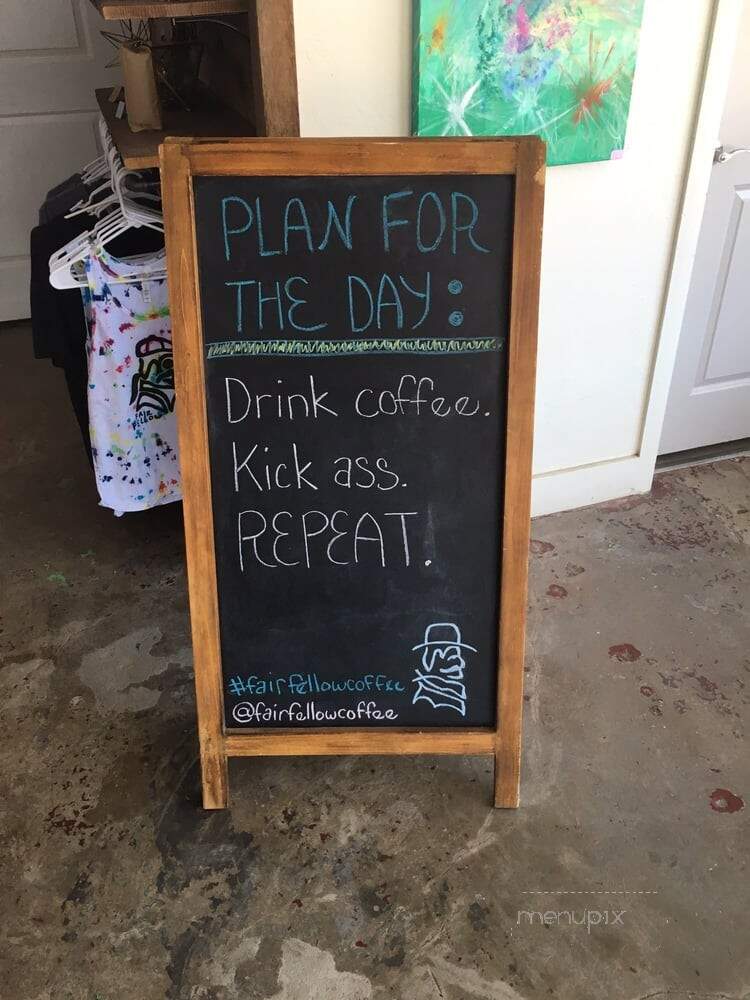 PLAN FOR
THE DAY:
Drink coffee.
Kick ass.
REPEAT.
#fairfellowcoffee
@fairfellowcoffee
FAIR
FELLOW
menupix